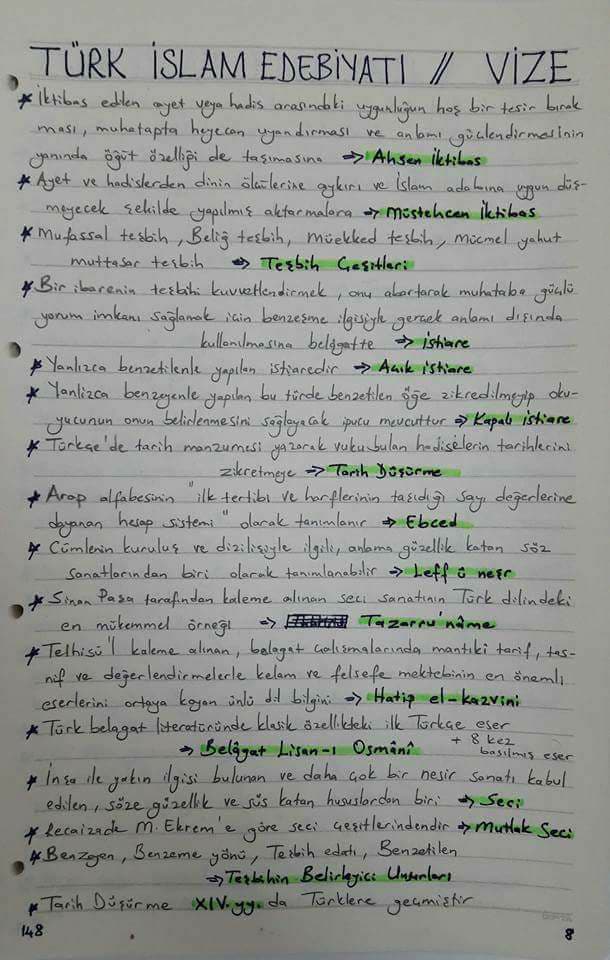 TÜRK İSLAM EDEBİYATI // VİZE
* İktibas edilen ayet veya hadis arasındaki uygunluğun hoş bir tesir bırak
ması, muhatapta heyecan uyandırması ve anlamı güçlendirmesinin
yanında öğüt özelliği de taşımasına → Ahsen İktibas
* Ayet ve hadislerden dinin ölçülerine aykırı ve İslam adabına uygun düş-
meyecek şekilde yapılmış aktarmalara → Müstehcen İktibas
* Mufassal teşbih, Beliğ teşbih, Müekked teşbih, Mücmel yahut
muttasar teşbih → Teşbih Çeşitleri
* Bir ibarenin teşbihi kuvvetlendirmek, onu abartarak muhataba güçlü
yorum imkanı sağlamak için benzeşme ilgisiyle gerçek anlamı dışında
kullanılmasına belâgatte → İstiare
* Yanlızca benzetilenle yapılan istiaredir → Açık istiare
* Yanlızca benzeyenle yapılan bu türde benzetilen öğe zikredilmeyip oku-
yucunun onun belirlenmesini sağlayacak ipucu mevcuttur → Kapalı istiare
* Türkçe'de tarih manzumesi yazarak vuku bulan hadiselerin tarihlerini
zikretmeye → Tarih Düşürme
* Arap alfabesinin "ilk tertibi ve harflerinin taşıdığı sayı değerlerine
dayanan hesap sistemi" olarak tanımlanır → Ebced
* Cümlenin kuruluş ve dizilişiyle ilgili, anlama güzellik katan söz
sanatlarından biri olarak tanımlanabilir → Leff ü neşr
* Sinan Paşa tarafından kaleme alınan seci sanatının Türk dilindeki
en mükemmel örneği → Tazarru'nâme
* Telhisü'l kaleme alınan, belagat çalışmalarında mantıki tarif, tas-
nif ve değerlendirmelerle kelam ve felsefe mektebinin en önemli
eserlerini ortaya koyan ünlü dil bilgini → Hatip el-kazvini
* Türk belagat literatüründe klasik özellikteki ilk Türkçe eser
→ Belâgat Lisan-ı Osmânî + 8 kez
basılmış eser
* İnşa ile yakın ilgisi bulunan ve daha çok bir nesir sanatı kabul
edilen, söze güzellik ve süs katan hususlardan biri → Seci
* Recaizade M. Ekrem'e göre seci çeşitlerindendir → Mutlak Seci
* Benzeyen, Benzeme yönü, Teşbih edatı, Benzetilen
→ Teşbihin Belirleyici Unsurları
* Tarih Düşürme XIV. yy. da Türklere geçmiştir
148 8